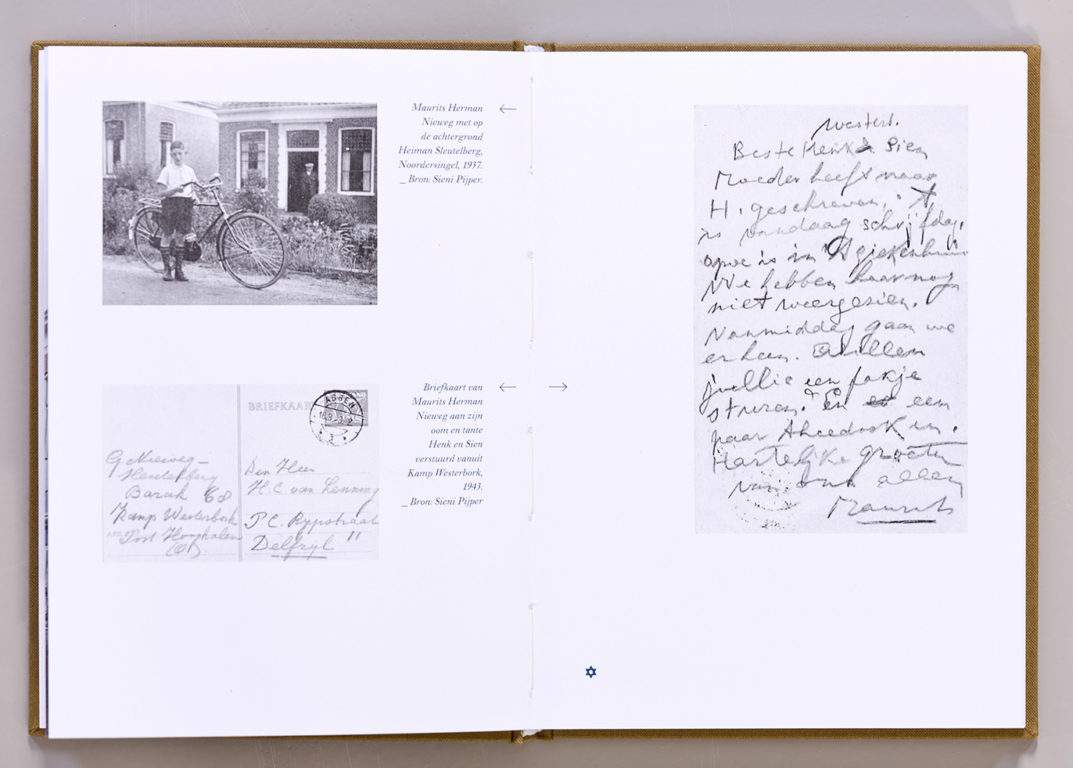 Maurits Herman
Nieweg met op
de achtergrond
Heiman Sleutelberg,
Noordersingel, 1937.
_ Bron: Sieni Pijper.
Briefkaart van
Maurits Herman
Nieweg aan zijn
oom en tante
Henk en Sien
verstuurd vanuit
Kamp Westerbork,
1943.
_ Bron: Sieni Pijper
BRIEFKAAR
ASSEN
G Nieweg-
Sleutelberg
Barak 68
Kamp Westerbork
Post Hooghalen
Den Heer
H.C. van Lenning
P.C.
Delfzyl
Westerb.
Beste Henk & Sien
Moeder heeft naar
H. geschreven,
is vandaag schrijfdag.
is in ziekenhuis
We hebben haar nog
niet weergezien.
Vanmiddag gaan we
erheen. Willen
jullie een pakje
sturen? En een
paar in.
Hartelijke groeten
van ons allen
Maurits